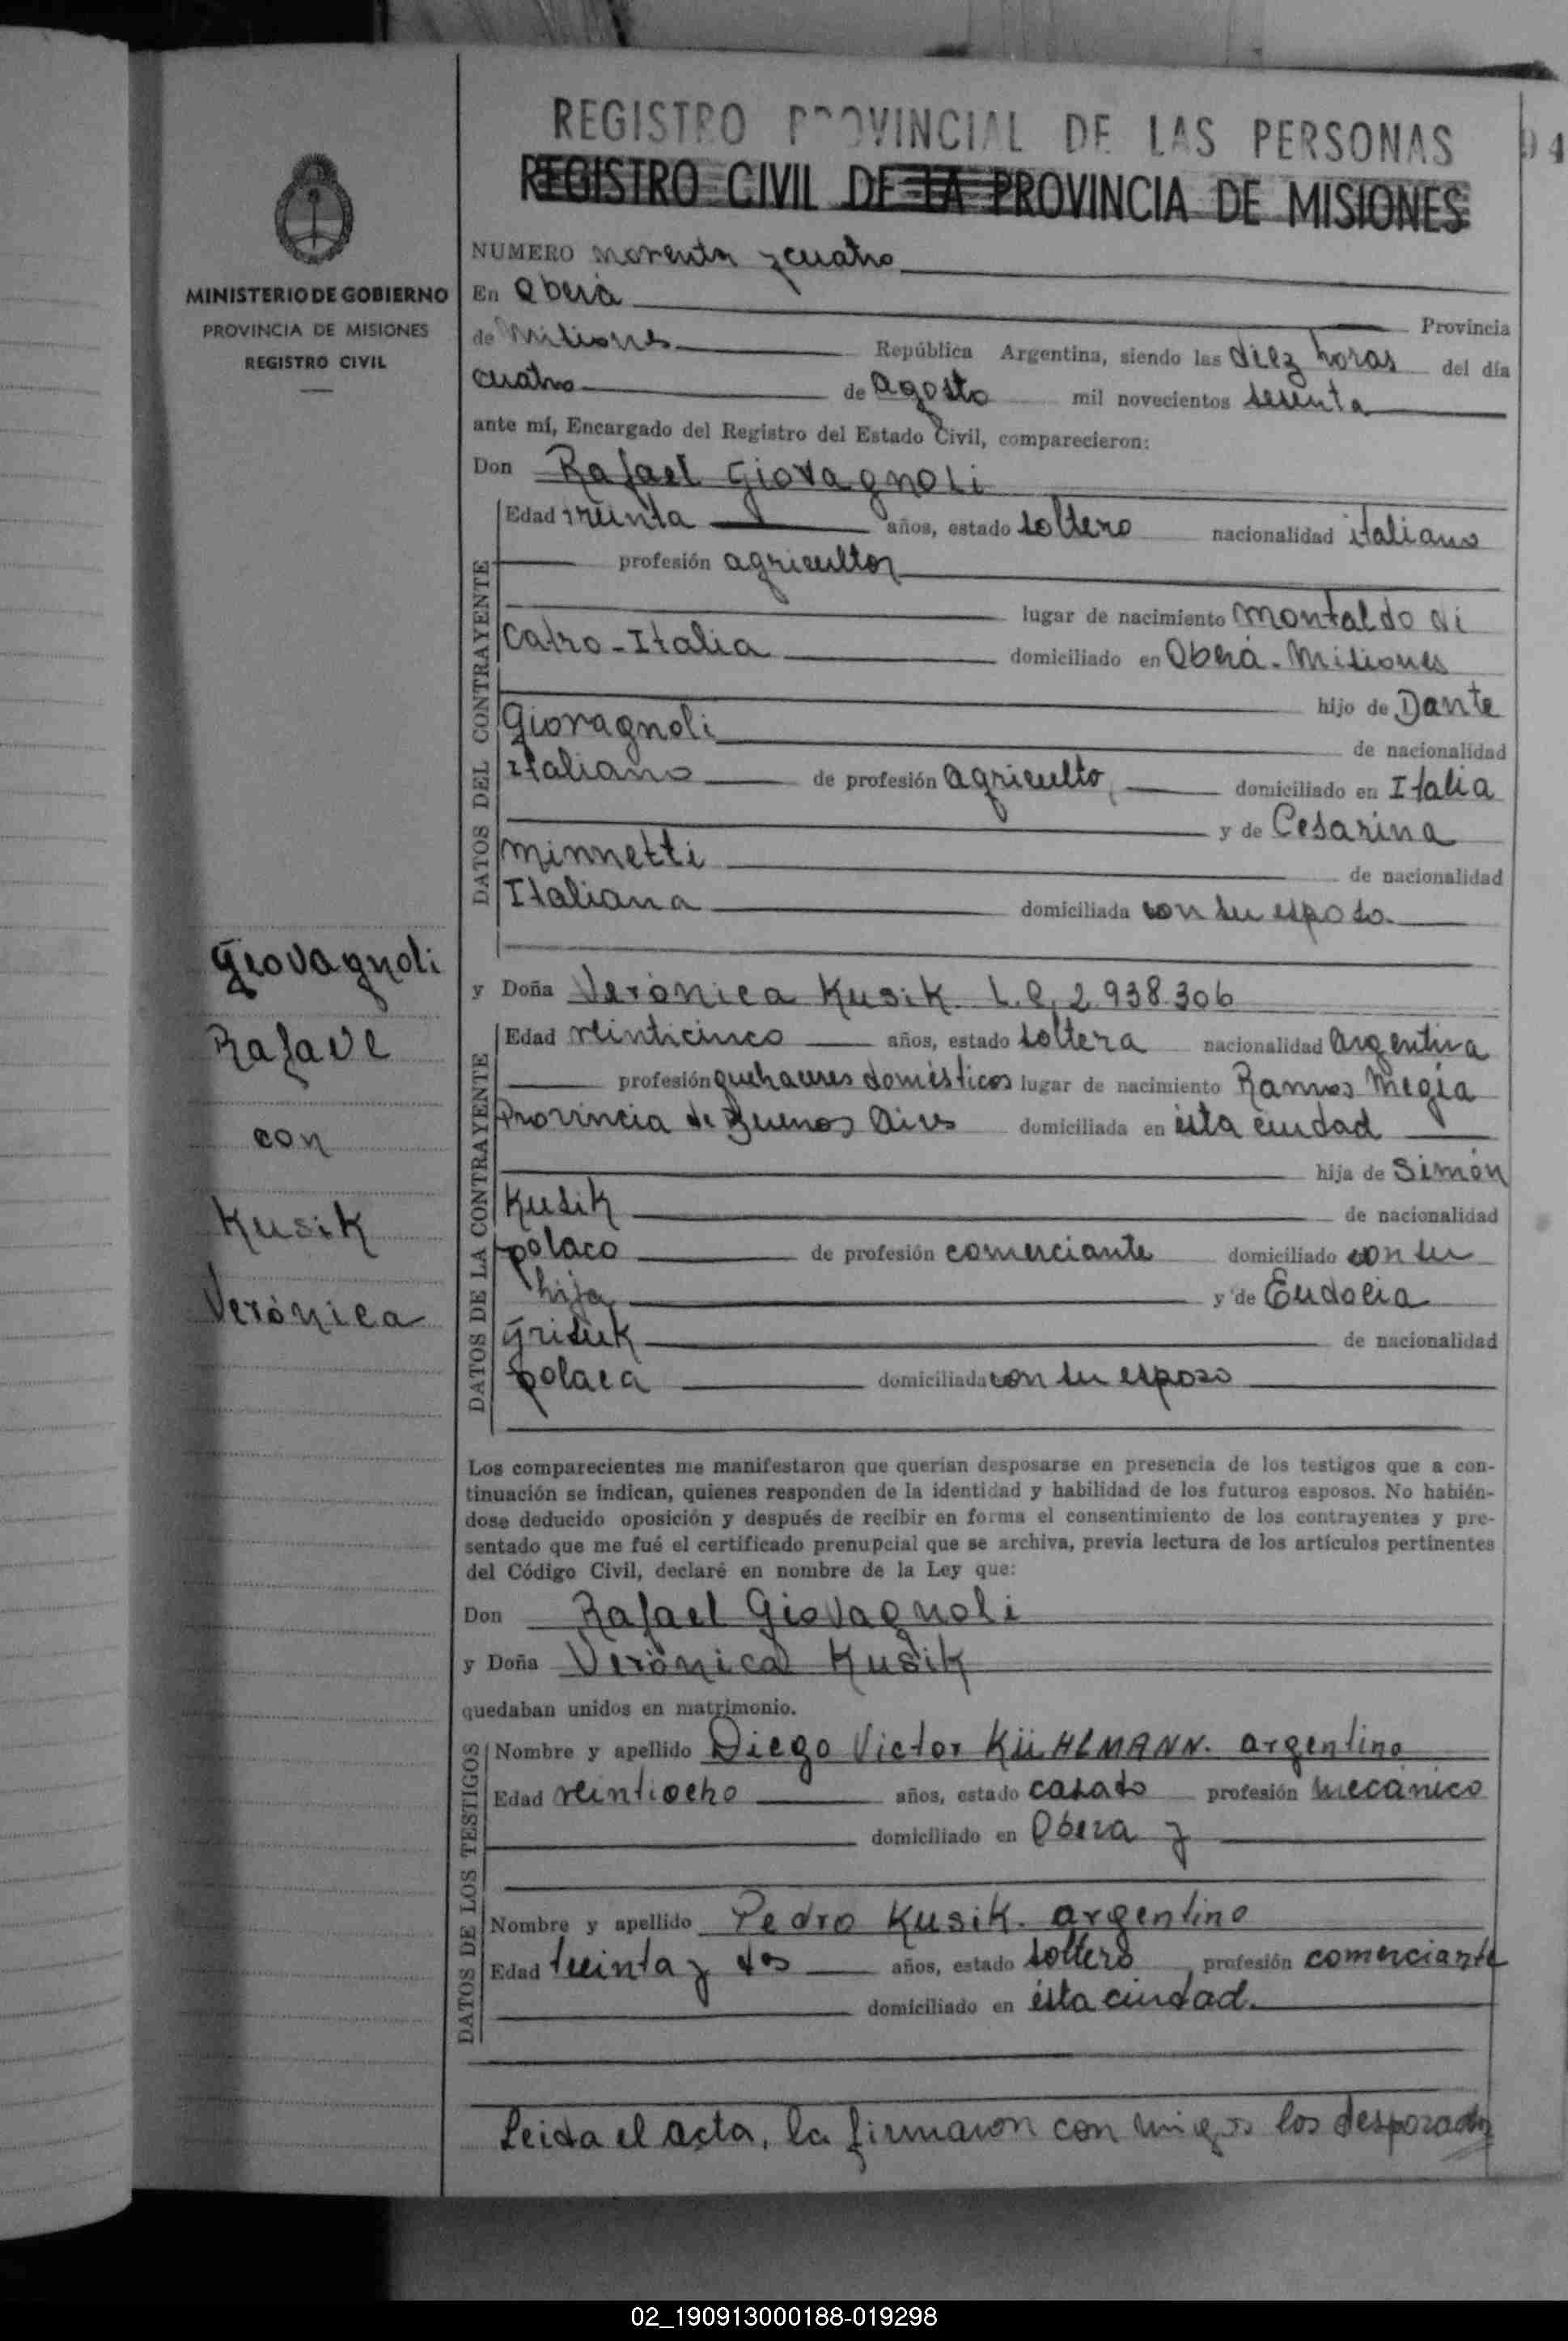 REGISTRO PROVINCIAL DE LAS PERSONAS
94
REGISTRO CIVIL DE LA PROVINCIA DE MISIONES
MINISTERIO DE GOBIERNO
PROVINCIA DE MISIONES
REGISTRO CIVIL
NUMERO noventa y cuatro
En Oberá Provincia
de Misiones República Argentina, siendo las diez horas del día
cuatro de agosto mil novecientos sesenta
ante mí, Encargado del Registro del Estado Civil, comparecieron:
Don Rafael Giovagnoli
DATOS DEL CONTRAYENTE
Edad treinta años, estado soltero nacionalidad italiano
profesión agricultor
lugar de nacimiento Montaldo di
Catro - Italia domiciliado en Oberá - Misiones
hijo de Dante
Giovagnoli de nacionalidad
italiano de profesión agricultor domiciliado en Italia
y de Cesarina
Minnetti de nacionalidad
Italiana domiciliada con su esposo.
Giovagnoli
Rafael
con
Kusik
Verónica
y Doña Verónica Kusik. L.C. 2.938.306
DATOS DE LA CONTRAYENTE
Edad veinticinco años, estado soltera nacionalidad argentina
profesión quehaceres domésticos lugar de nacimiento Ramos Megía
Provincia de Buenos Aires domiciliada en ésta ciudad
hija de Simón
Kusik de nacionalidad
polaco de profesión comerciante domiciliado con su
hija y de Eudocia
de nacionalidad
polaca domiciliada con su esposo
Los comparecientes me manifestaron que querían desposarse en presencia de los testigos que a con-
tinuación se indican, quienes responden de la identidad y habilidad de los futuros esposos. No habién-
dose deducido oposición y después de recibir en forma el consentimiento de los contrayentes y pre-
sentado que me fué el certificado prenupcial que se archiva, previa lectura de los artículos pertinentes
del Código Civil, declaré en nombre de la Ley que:
Don Rafael Giovagnoli
y Doña Verónica Kusik
quedaban unidos en matrimonio.
DATOS DE LOS TESTIGOS
Nombre y apellido Diego Victor KÜHLMANN. argentino
Edad veintiocho años, estado casado profesión mecánico
domiciliado en Obera y
Nombre y apellido Pedro Kusik. argentino
Edad treinta y dos años, estado soltero profesión comerciante
domiciliado en ésta ciudad.
Leida el acta, la firmaron con migo los desposados
02_190913000188-019298